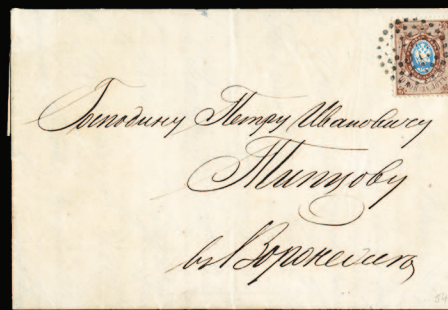 Господину Петру Ивановичу
Типцову
въ Воронежъ